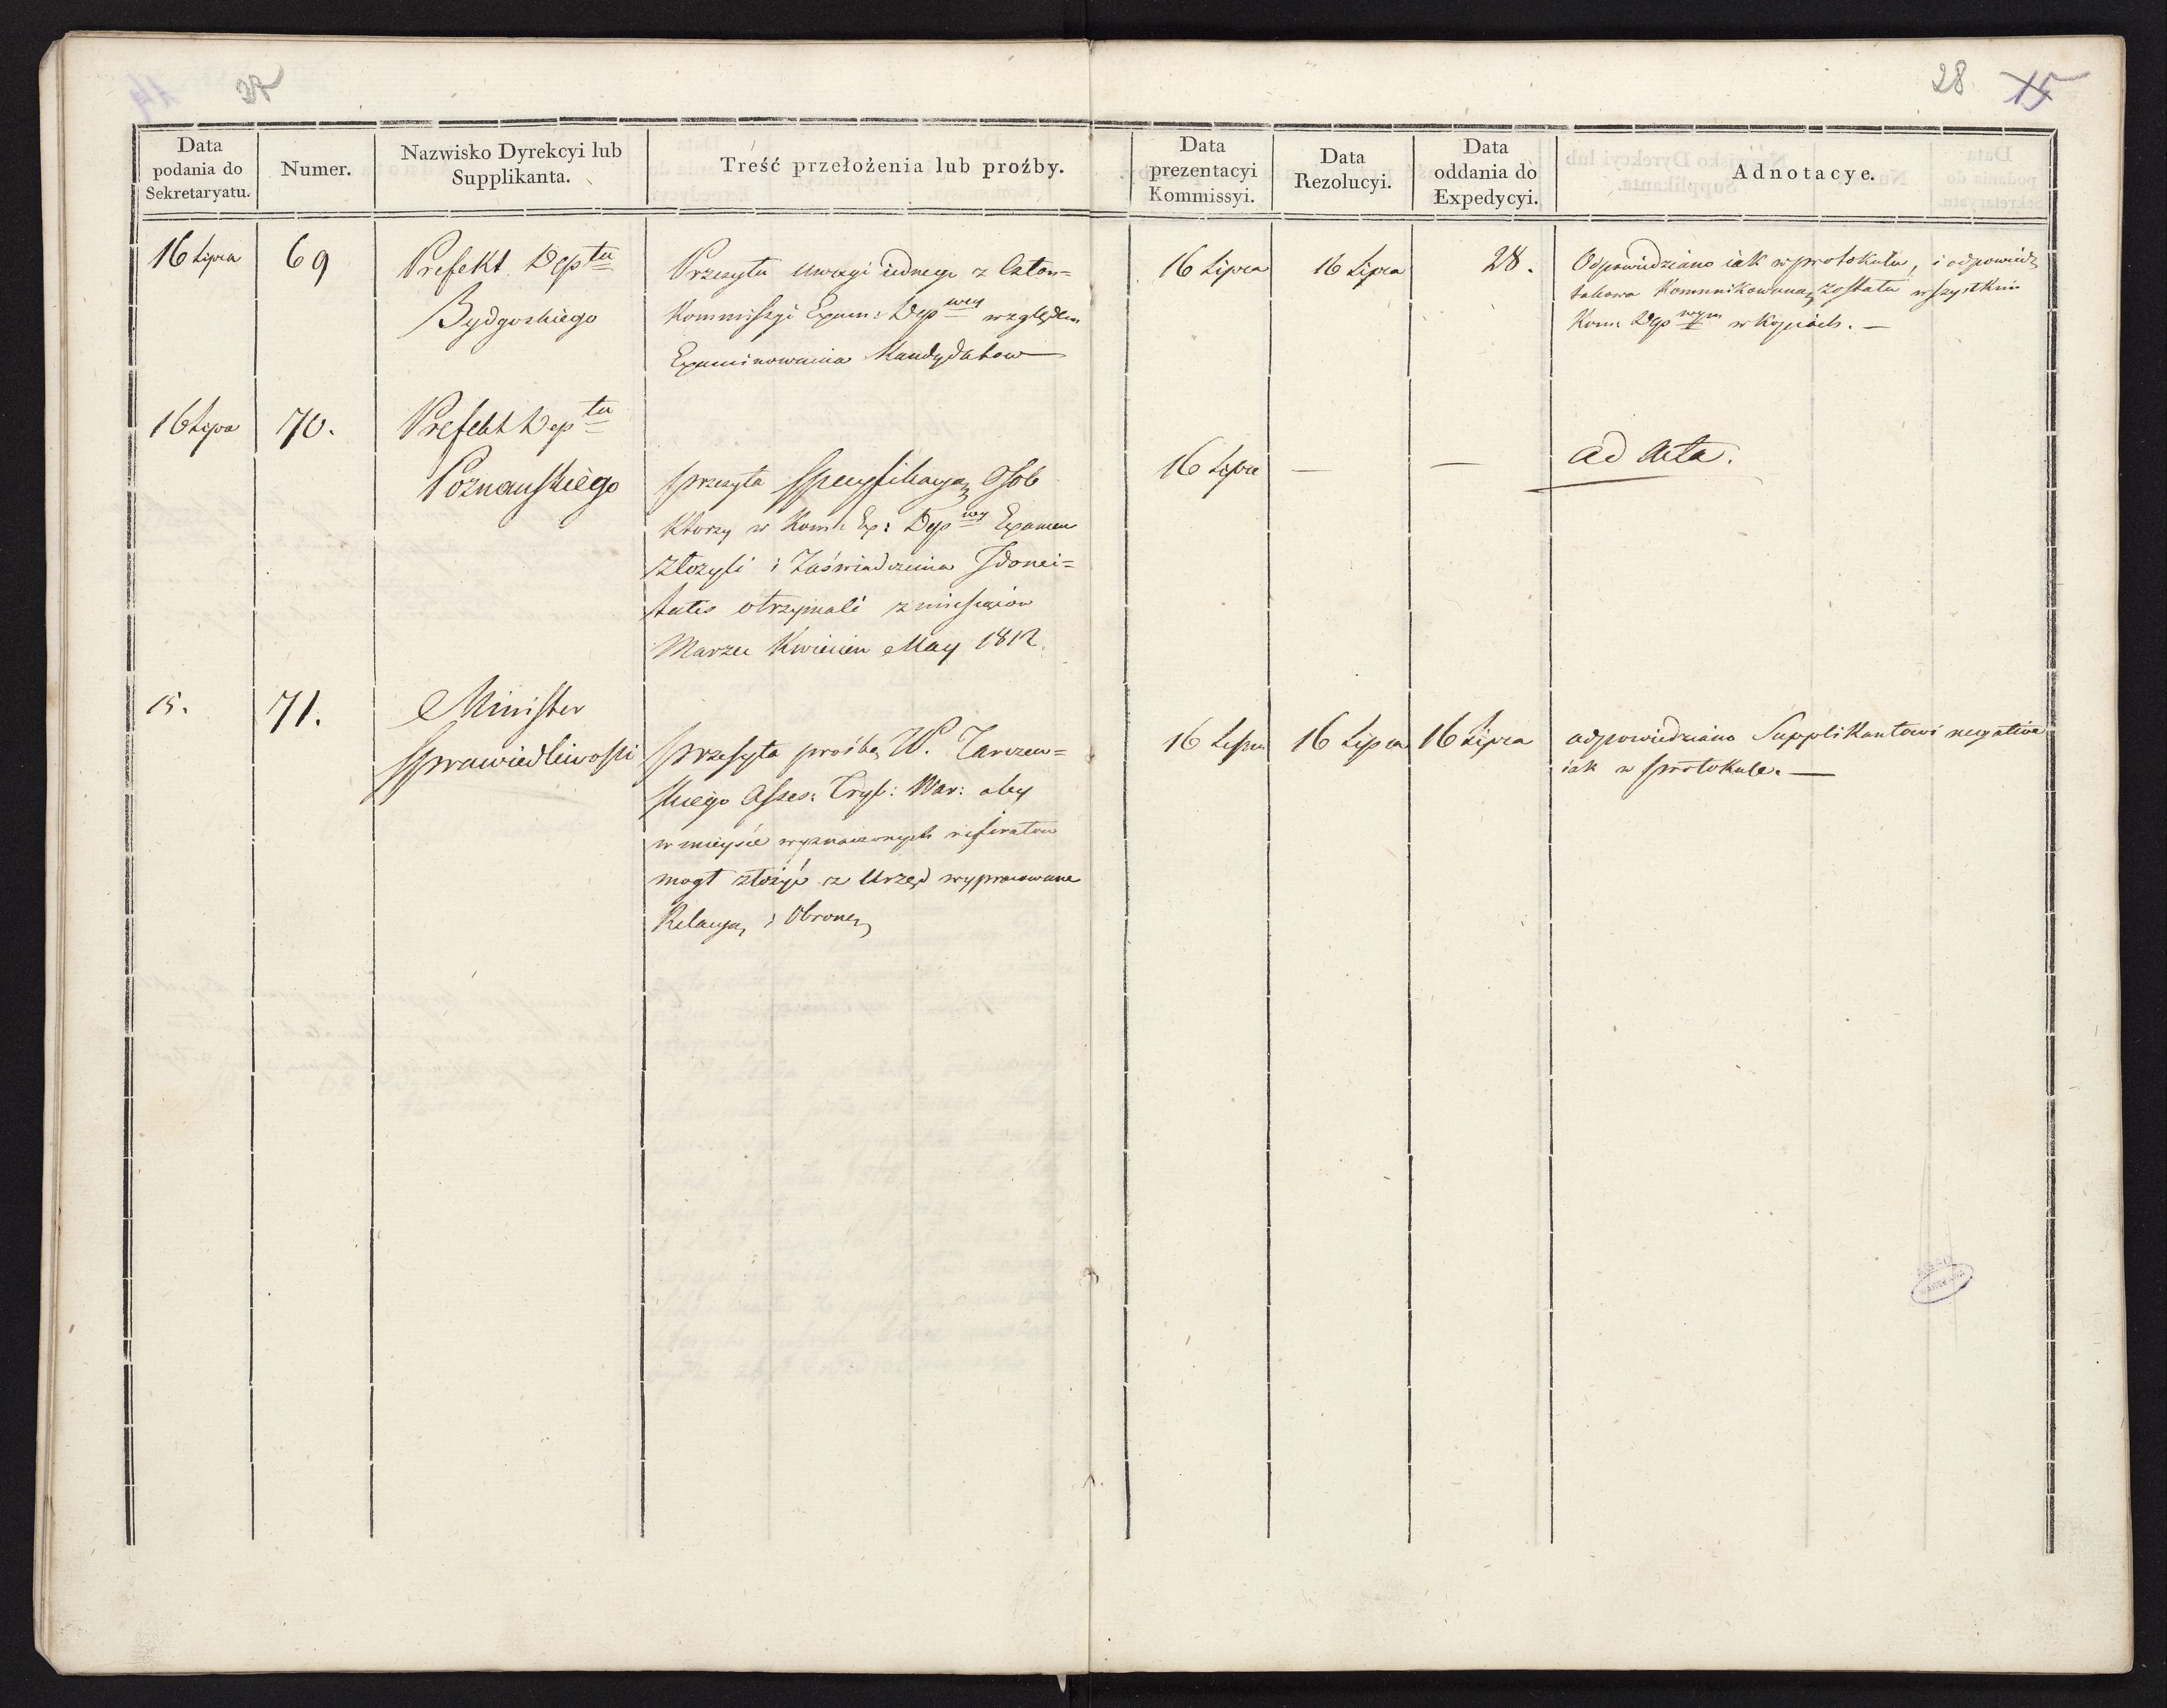 27
28 15
Data
podania do
Sekretaryatu.
Numer.
Nazwisko Dyrekcyi lub
Supplikanta.
Treść przełożenia lub proźby.
Data
prezentacyi
Kommissyi.
Data
Rezolucyi.
Data
oddania do
Expedycyi.
Adnotacye.
16 Lipca
69
Prefekt Dep tu
Bydgoskiego
Przesyła uwagi iednego z Człon=
Kommissyi Exam: Dep wey względem
Examinowania Kandydatow
16 Lipca
16 Lipca
28.
Odpowiedziano iak w protokule, i odpowiedz
takowa Kommunikowana została wszystkim
Kom: Dep wym w Kopiach. —
16 Lipca
70.
Prefekt Dep tu
Poznanskiego
przesyła Specyfikacyą Osob
Ktorzy w Kom: Ex: Dep wey Examen
złożyli i Zaświadczenia Idonei=
tatis otrzymali z miesięcow
Marzec Kwiecien May 1812.
16 Lipca
—
—
ad Acta.
15.
71.
Minister
Sprawiedliwosci
przesyła prośbę W. Tarczew=
skiego Asses: Tryb: War: aby
w mieysce wyznaczonych referatow
mogł złożyć z Urzęd wypracowane
Relacyą i Obronę
16 Lipca
16 Lipca
16 Lipca
odpowiedziano Supplikantowi negative
iak w protokule. —